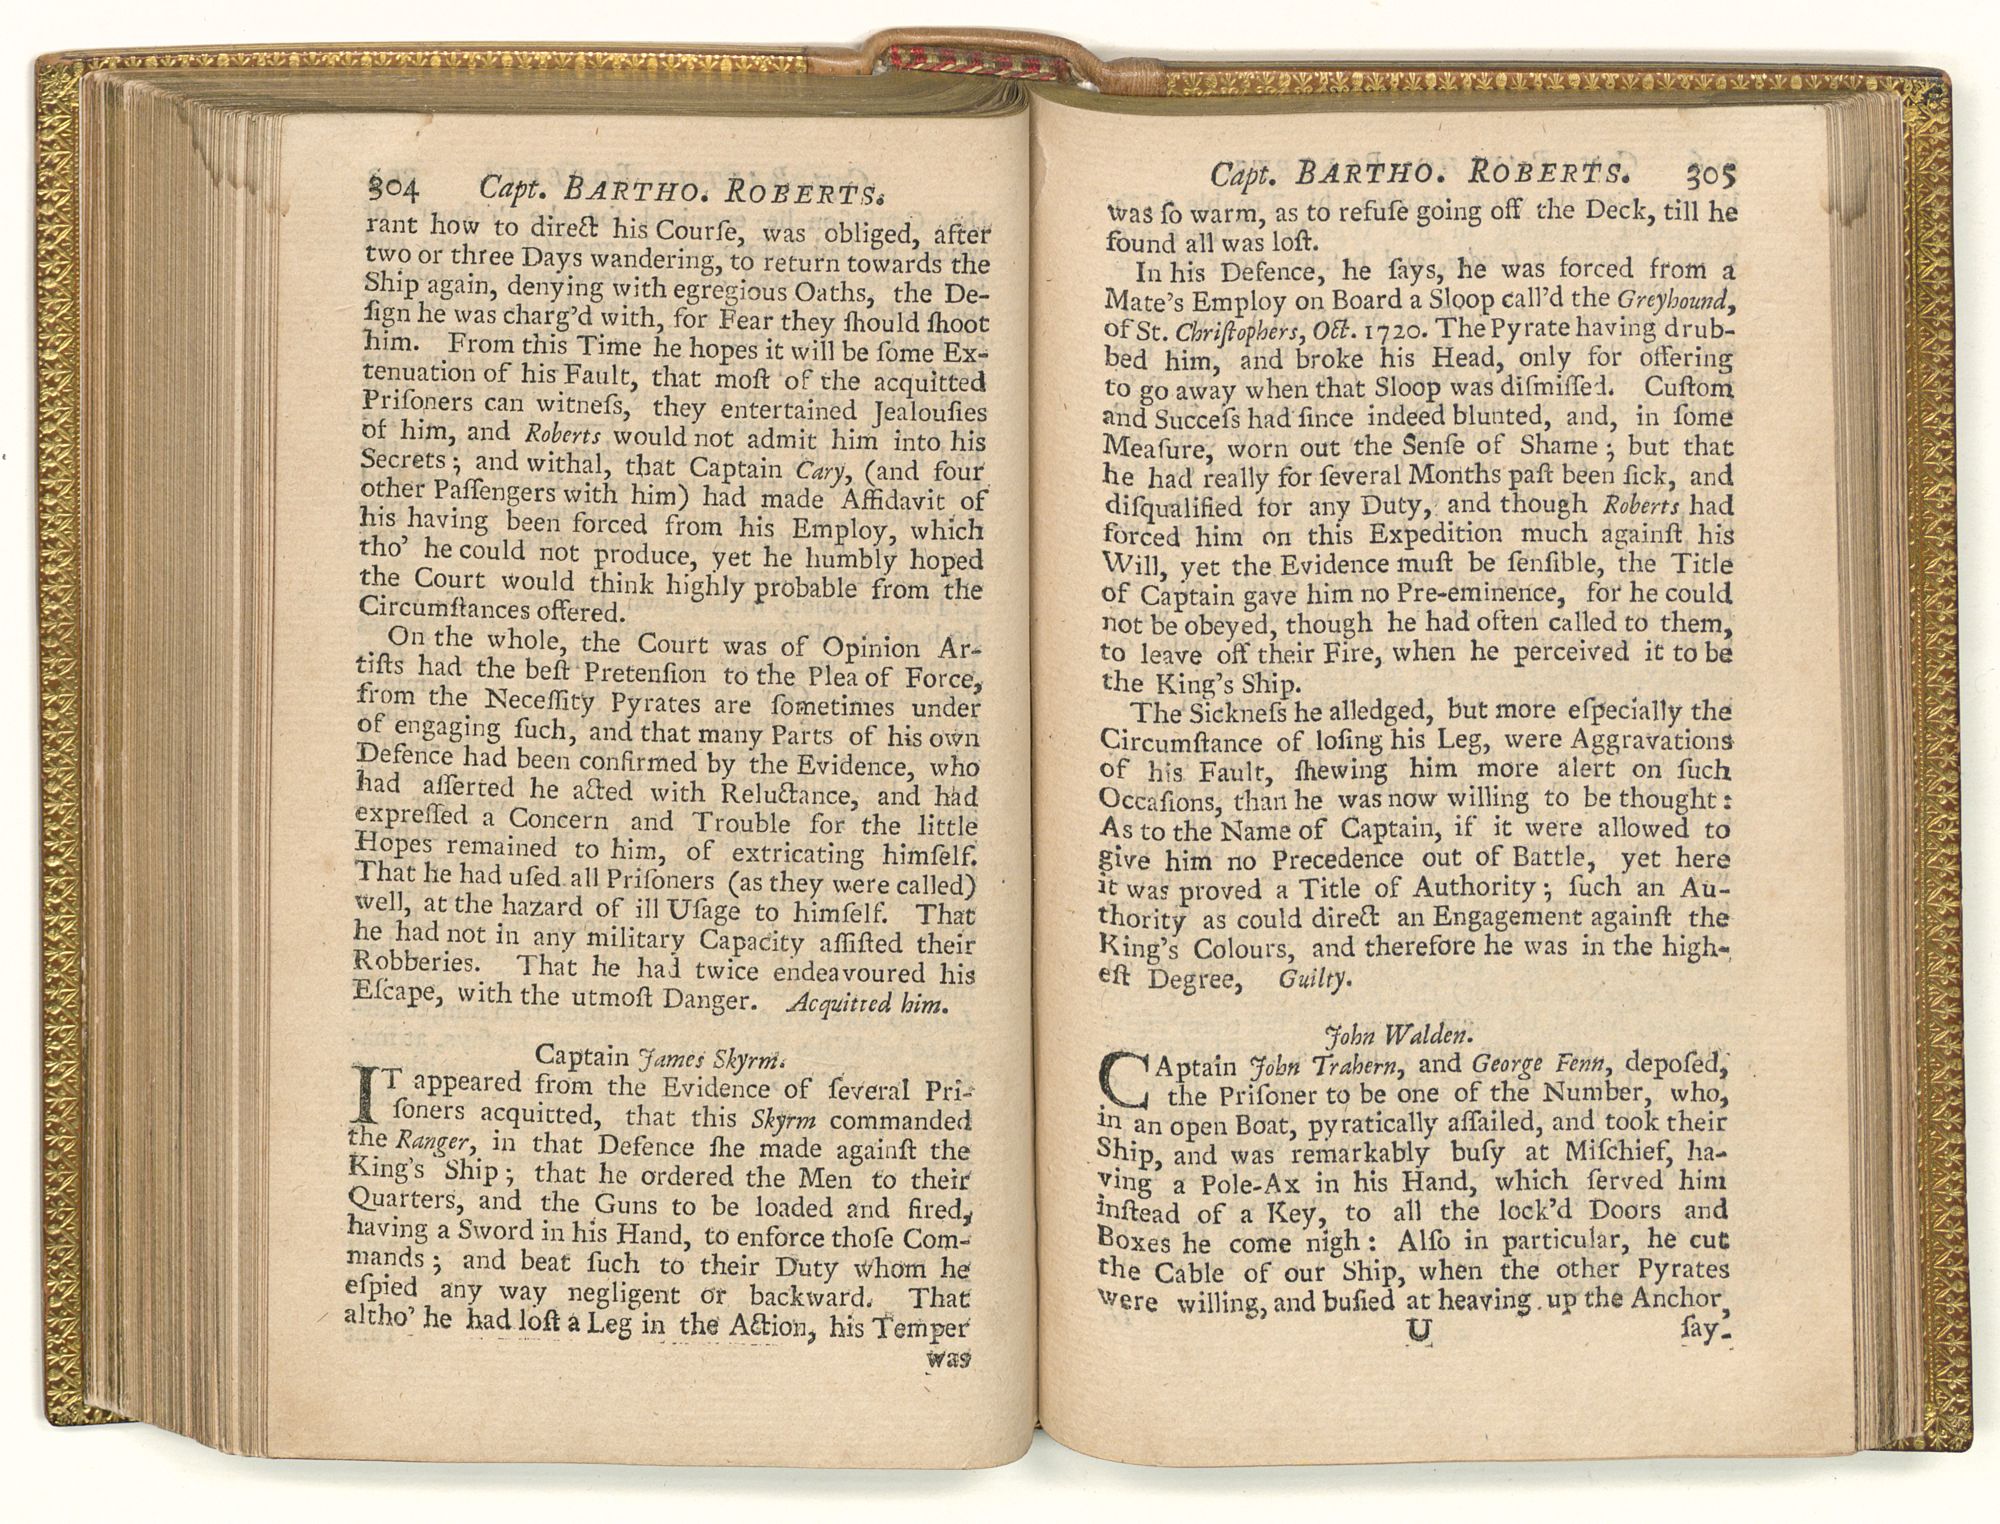 304 Capt. BARTHO. ROBERTS.
rant how to direct his Courſe, was obliged, after
two or three Days wandering, to return towards the
Ship again, denying with egregious Oaths, the De-
ſign he was charg'd with, for Fear they ſhould ſhoot
him. From this Time he hopes it will be ſome Ex-
tenuation of his Fault, that moſt of the acquitted
Priſoners can witneſs, they entertained Jealouſies
of him, and Roberts would not admit him into his
Secrets; and withal, that Captain Cary, (and four
other Paſſengers with him) had made Affidavit of
his having been forced from his Employ, which
tho' he could not produce, yet he humbly hoped
the Court would think highly probable from the
Circumſtances offered.
On the whole, the Court was of Opinion Ar-
tiſts had the beſt Pretenſion to the Plea of Force,
from the Neceſſity Pyrates are ſometimes under
of engaging ſuch, and that many Parts of his own
Defence had been confirmed by the Evidence, who
had aſſerted he acted with Reluctance, and had
expreſſed a Concern and Trouble for the little
Hopes remained to him, of extricating himſelf.
That he had uſed all Priſoners (as they were called)
well, at the hazard of ill Uſage to himſelf. That
he had not in any military Capacity aſſiſted their
Robberies. That he had twice endeavoured his
Eſcape, with the utmoſt Danger. Acquitted him.
Captain James Skyrm.
IT appeared from the Evidence of ſeveral Pri-
ſoners acquitted, that this Skyrm commanded
the Ranger, in that Defence ſhe made againſt the
King's Ship; that he ordered the Men to their
Quarters, and the Guns to be loaded and fired,
having a Sword in his Hand, to enforce thoſe Com-
mands; and beat ſuch to their Duty whom he
eſpied any way negligent or backward. That
altho' he had loſt a Leg in the Action, his Temper
was
Capt. BARTHO. ROBERTS. 305
was ſo warm, as to refuſe going off the Deck, till he
found all was loſt.
In his Defence, he ſays, he was forced from a
Mate's Employ on Board a Sloop call'd the Greyhound,
of St. Chriſtophers, Oct. 1720. The Pyrate having drub-
bed him, and broke his Head, only for offering
to go away when that Sloop was diſmiſſed. Cuſtom
and Succeſs had ſince indeed blunted, and, in ſome
Meaſure, worn out the Senſe of Shame; but that
he had really for ſeveral Months paſt been ſick, and
diſqualified for any Duty, and though Roberts had
forced him on this Expedition much againſt his
Will, yet the Evidence muſt be ſenſible, the Title
of Captain gave him no Pre-eminence, for he could
not be obeyed, though he had often called to them,
to leave off their Fire, when he perceived it to be
the King's Ship.
The Sickneſs he alledged, but more eſpecially the
Circumſtance of loſing his Leg, were Aggravations
of his Fault, ſhewing him more alert on ſuch
Occaſions, than he was now willing to be thought:
As to the Name of Captain, if it were allowed to
give him no Precedence out of Battle, yet here
it was proved a Title of Authority; ſuch an Au-
thority as could direct an Engagement againſt the
King's Colours, and therefore he was in the high-
eſt Degree, Guilty.
John Walden.
CAptain John Trahern, and George Fenn, depoſed,
the Priſoner to be one of the Number, who,
in an open Boat, pyratically aſſailed, and took their
Ship, and was remarkably buſy at Miſchief, ha-
ving a Pole-Ax in his Hand, which ſerved him
inſtead of a Key, to all the lock'd Doors and
Boxes he come nigh: Alſo in particular, he cut
the Cable of our Ship, when the other Pyrates
were willing, and buſied at heaving up the Anchor,
U ſay-